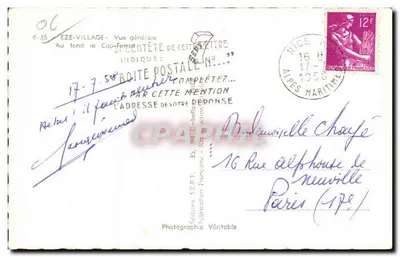 06
E-35 - EZE-VILLAGE - Vue générale
Au fond le Cap-Ferrat
SI L'ENTÊTE DE CETTE LETTRE
INDIQUE:
"BOITE POSTALE N°..."
COMPLÉTEZ...
PAR CETTE MENTION
L'ADRESSE DE VOTRE RÉPONSE
NICE
16 H
17-7
1958
ALPES MARITIMES
12F
17.7.58
Hélas! il faut
Mademoiselle
16 Rue alphonse de
neuville
Paris (17e)
Photographie Véritable